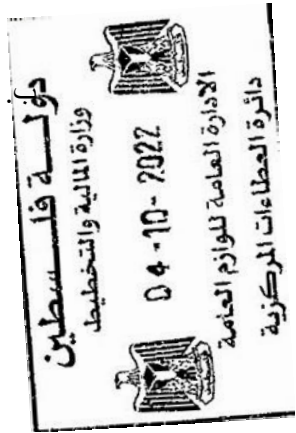 دولة فلسطين
وزارة المالية والتخطيط
04-10-2022
الادارة العامة للوازم العامة
دائرة العطاءات المركزية